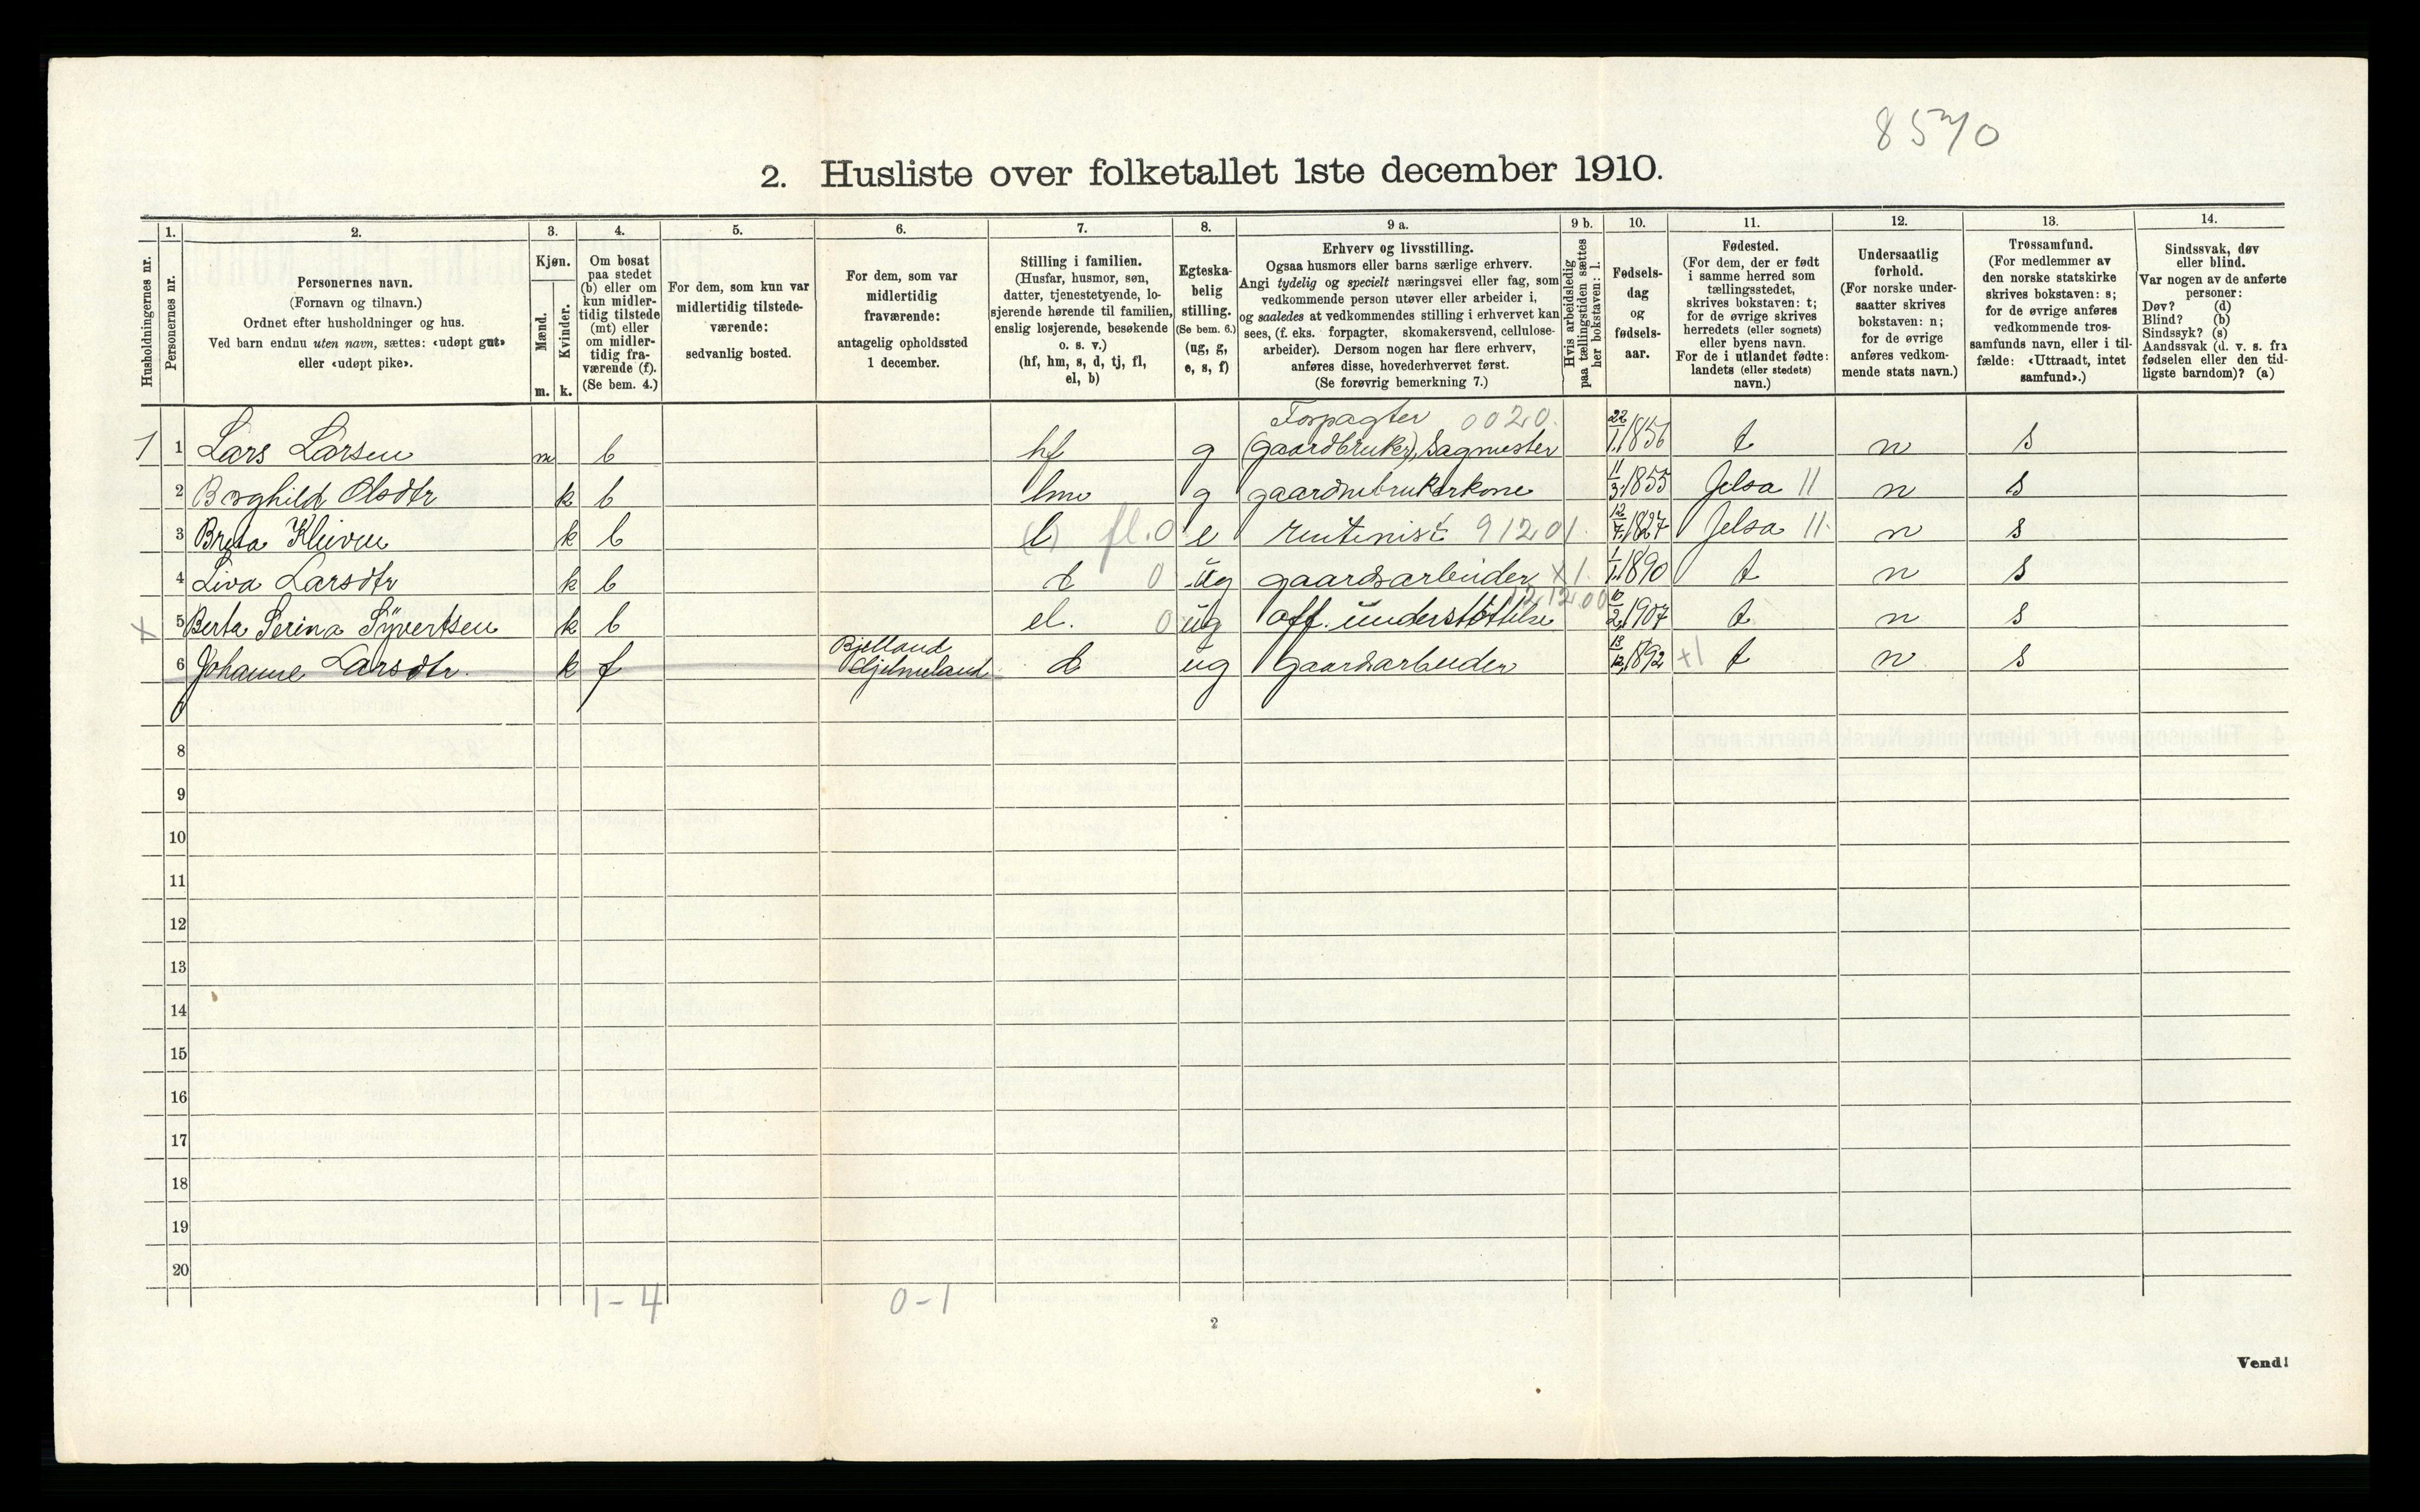 8570
2. Husliste over folketallet 1ste december 1910.
Husholdningernes nr.
1.
Personernes nr.
2.
Personernes navn.
(Fornavn og tilnavn.)
Ordnet efter husholdninger og hus.
Ved barn endnu uten navn, sættes: «udøpt gut»
eller «udøpt pike».
3.
Kjøn.
Mænd.
Kvinder.
m. k.
4.
Om bosat
paa stedet
(b) eller om
kun midler-
tidig tilstede
(mt) eller
om midler-
tidig fra-
værende (f).
(Se bem. 4.)
5.
For dem, som kun var
midlertidig tilstede-
værende:
sedvanlig bosted.
6.
For dem, som var
midlertidig
fraværende:
antagelig opholdssted
1 december.
7.
Stilling i familien.
(Husfar, husmor, søn,
datter, tjenestetyende, lo-
sjerende hørende til familien,
enslig losjerende, besøkende
o. s. v.)
(hf, hm, s, d, tj, fl,
el, b)
8.
Egteska-
belig
stilling.
(Se bem. 6.)
(ug, g,
e, s, f)
9 a.
Erhverv og livsstilling.
Ogsaa husmors eller barns særlige erhverv.
Angi tydelig og specielt næringsvei eller fag, som
vedkommende person utøver eller arbeider i,
og saaledes at vedkommendes stilling i erhvervet kan
sees, (f. eks. forpagter, skomakersvend, cellulose-
arbeider). Dersom nogen har flere erhverv,
anføres disse, hovederhvervet først.
(Se forøvrig bemerkning 7.)
9 b.
Hvis arbeidsledig
paa tællingstiden sættes
her bokstaven: l.
10.
Fødsels-
dag
og
fødsels-
aar.
11.
Fødested.
(For dem, der er født
i samme herred som
tællingsstedet,
skrives bokstaven: t;
for de øvrige skrives
herredets (eller sognets)
eller byens navn.
For de i utlandet fødte:
landets (eller stedets)
navn.)
12.
Undersaatlig
forhold.
(For norske under-
saatter skrives
bokstaven: n;
for de øvrige
anføres vedkom-
mende stats navn.)
13.
Trossamfund.
(For medlemmer av
den norske statskirke
skrives bokstaven: s;
for de øvrige anføres
vedkommende tros-
samfunds navn, eller i til-
fælde: «Uttraadt, intet
samfund».)
14.
Sindssvak, døv
eller blind.
Var nogen av de anførte
personer:
Døv? (d)
Blind? (b)
Sindssyk? (s)
Aandssvak (d. v. s. fra
fødselen eller den tid-
ligste barndom)? (a)
Forpagter 0020.
1 1 Lars Larsen m b hf g (gaardbruker), Sagmester 22/1 1856 t n s
2 Borghild Olsdtr k b hm g gaardmbrukerkone 11/3 1855 Jelsa 11 n s
3 Brita Kleiven k b (l) fl. 0 e rentenist 91201. 12/7 1827 Jelsa 11. n s
4 Liva Larsdtr k b d 0 ug gaardsarbeider x 1. 1/1 1890 t n s
121200
x 5 Berta Serina Syvertsen k b el. 0 ug off. understøttelse 10/2 1907 t n s
6 Johanne Larsdtr. k f Bjelland Hjelmeland d ug gaardsarbeider 13/12 1892 x1 t n s
7
8
9
10
11
12
13
14
15
16
17
18
19
20
1-4 0-1
2
Vend!